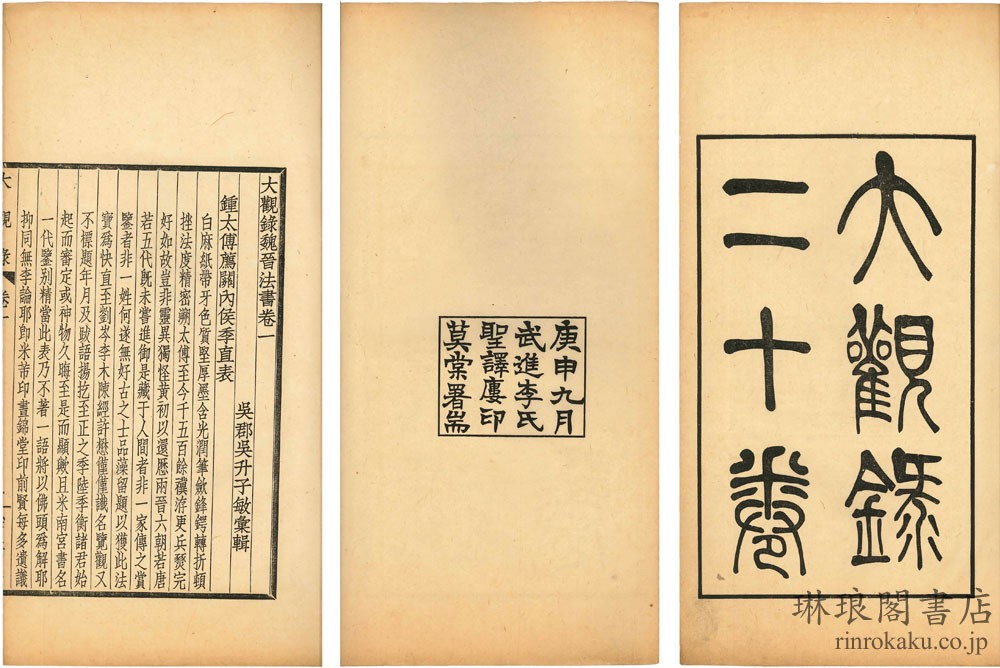 大觀錄
二十卷
庚申九月
武進李氏
聖譯廔印
莫棠署耑
大觀錄魏晉法書卷一
吳郡吳升子敏彙輯
鍾太傅薦關內侯季直表
白麻紙帶牙色質堅厚墨含光潤筆斂鋒鍔轉折頓
挫法度精密溯太傅至今千五百餘禩洊更兵燹完
好如故豈非靈異獨怪黃初以還歷兩晉六朝若唐
若五代旣未嘗進御是藏于人間者非一家傳之賞
鑒者非一姓何遂無好古之士品藻留題以獲此法
寶爲快直至劉岑李木陳經許懋僅僅識名覽觀又
不標題年月及跋語揚扢至正之季陸季衡諸君始
起而審定或神物久晦至是而顯歟且米南宮書名
一代鑒別精當此表乃不著一語將以佛頭爲解耶
抑同無李論耶卽米芾印晝錦堂印前賢每多遺議
大觀錄 卷一
琳琅閣書店
rinrokaku.co.jp